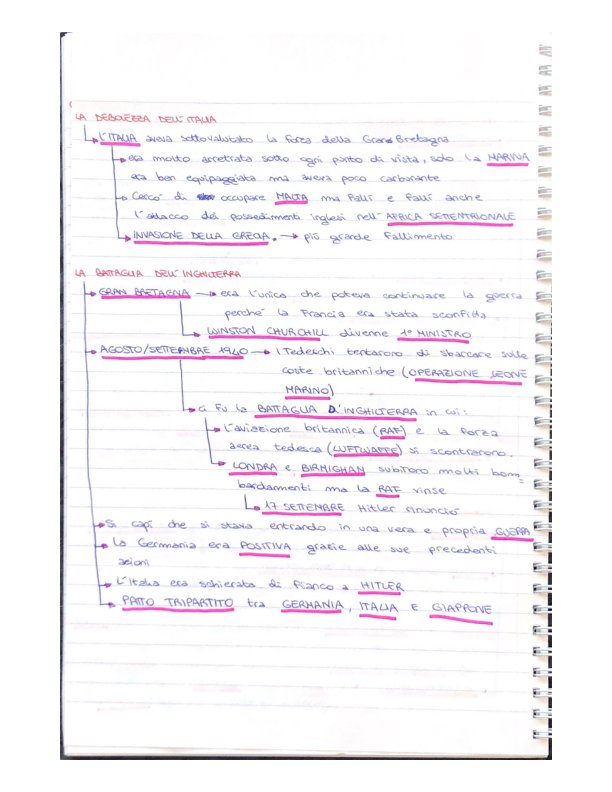 LA DEBOLEZZA DELL'ITALIA
L'ITALIA aveva sottovalutato la forza della Gran Bretagna
era molto arretrata sotto ogni punto di vista, solo la MARINA
era ben equipaggiata ma aveva poco carburante
Cercò di occupare MALTA ma fallì e fallì anche
l'attacco dei possedimenti inglesi nell'AFRICA SETTENTRIONALE
INVASIONE DELLA GRECIA. → più grande fallimento
LA BATTAGLIA DELL'INGHILTERRA
GRAN BRETAGNA → era l'unica che poteva continuare la guerra
perché la Francia era stata sconfitta
WINSTON CHURCHILL divenne 1° MINISTRO
AGOSTO/SETTEMBRE 1940 → I Tedeschi tentarono di sbarcare sulle
coste britanniche (OPERAZIONE LEONE
MARINO)
ci fu la BATTAGLIA D'INGHILTERRA in cui:
L'aviazione britannica (RAF) e la forza
aerea tedesca (LUFTWAFFE) si scontrarono.
LONDRA e BIRMIGHAN subirono molti bom=
bardamenti ma la RAF vinse
17 SETTEMBRE Hitler rinunciò
Si capì che si stava entrando in una vera e propria GUERRA
La Germania era POSITIVA grazie alle sue precedenti
azioni
L'Italia era schierata di fianco a HITLER
PATTO TRIPARTITO tra GERMANIA, ITALIA E GIAPPONE